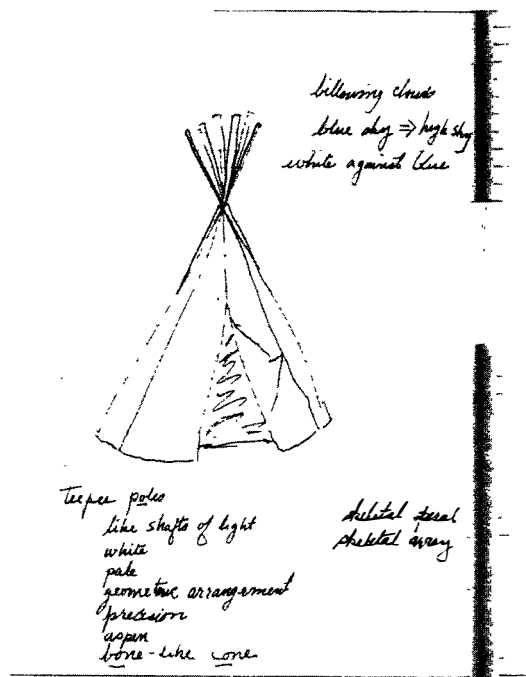 billowing clouds
blue sky ⇒ high sky
white against blue
Teepee poles
like shafts of light
white
pale
geometric arrangement
precision
aspen
bone-like cone
skeletal
skeletal array